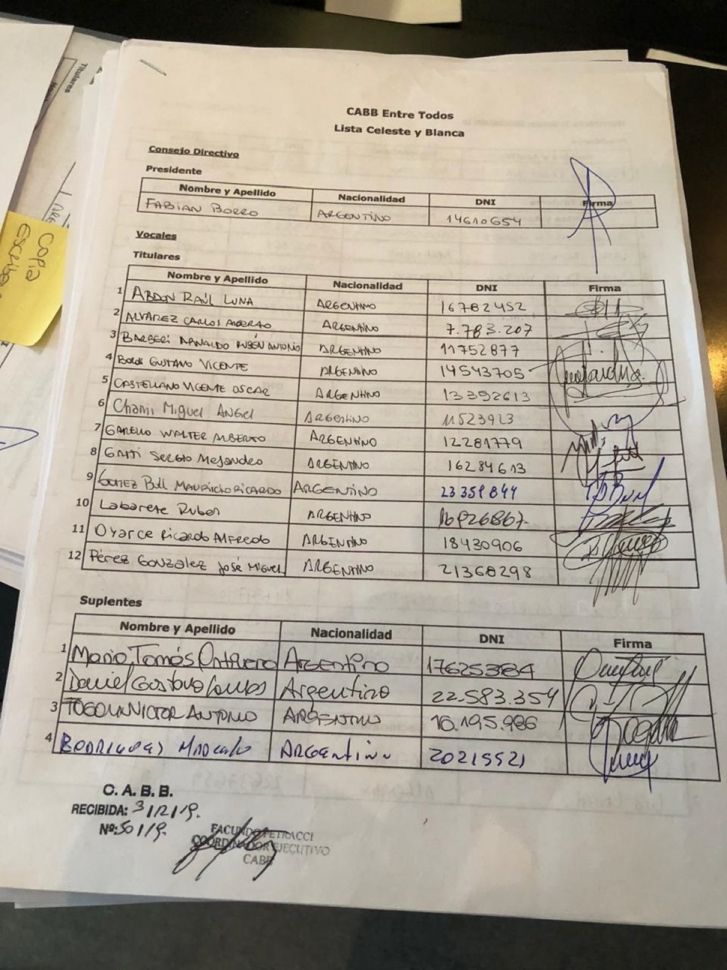 CABB Entre Todos
Lista Celeste y Blanca
Consejo Directivo
Presidente
Nombre y Apellido Nacionalidad DNI Firma
FABIAN BORRO ARGENTINO 14610654
Vocales
Titulares
Nombre y Apellido Nacionalidad DNI Firma
1 ABDON RAÚL LUNA ARGENTINO 16782452
2 ALVAREZ CARLOS ARGENTINO 7.783.207
3 BARBERI ARNALDO RUBÉN ANTONIO ARGENTINO 11752877
4 GUSTAVO VICENTE ARGENTINO 14543705
5 CASTELLANO VICENTE OSCAR ARGENTINO 13392613
6 Chami Miguel Angel ARGENTINO 11523923
7 GARELLO WALTER ALBERTO ARGENTINO 12281779
8 GATTI SERGIO ARGENTINO 16284613
9 GOMEZ BULL MAURICIO RICARDO ARGENTINO 23359844
10 Labarete Ruben ARGENTINO 16926867
11 Oyarce Ricardo Alfredo ARGENTINO 18430906
12 Pérez González José Miguel ARGENTINO 21368298
Suplentes
Nombre y Apellido Nacionalidad DNI Firma
1 Mario Tomás Argentino 17625384
2 Daniel Gustavo Argentino 22.583.354
3 VICTOR ANTONIO ARGENTINO 10.195.986
4 ARGENTINO 20215521
C. A. B. B.
RECIBIDA: 3/12/19.
Nº: 501/9.
FACUNDO PETRACCI
COORDINADOR EJECUTIVO
CABB
Copia
Titulares